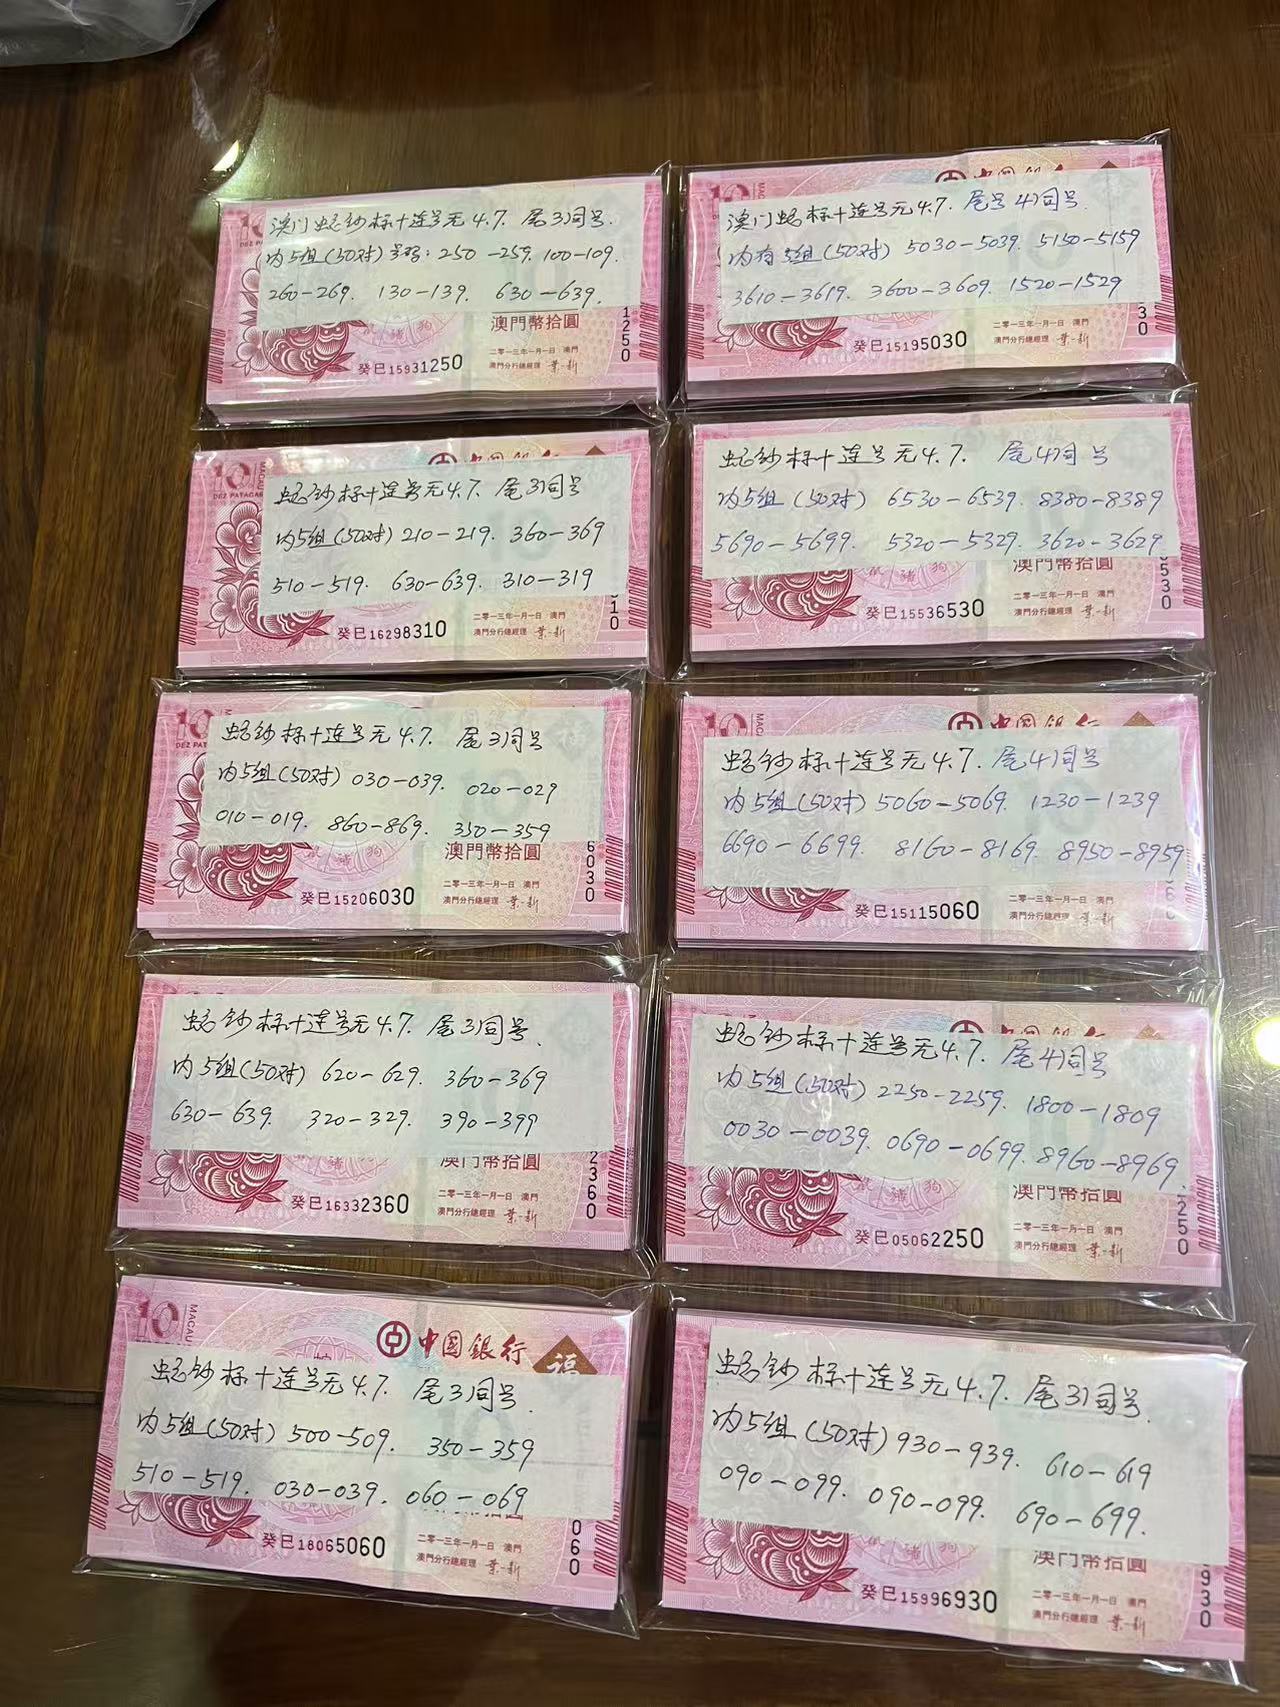 10
澳门蛇钞标十连号无4.7. 尾3同号.
内5组(50对)号码:250-259. 100-109.
260-269. 130-139. 630-639.
澳門幣拾圓
二零一三年一月一日 澳門
澳門分行總經理
癸巳15931250
1250
10
中国银行
澳门蛇标十连号无4.7. 尾号4同号.
内有5组(50对) 5030-5039. 5150-5159
3610-3619. 3600-3609. 1520-1529
二零一三年一月一日 澳門
澳門分行總經理
癸巳15195030
30
10
MACAU
DEZ PATACAS
蛇钞标十连号无4.7. 尾3同号
内5组(50对)210-219. 360-369
510-519. 630-639. 310-319
二零一三年一月一日 澳門
澳門分行總經理
癸巳16298310
310
蛇钞标十连号无4.7. 尾4同号
内5组(50对) 6530-6539. 8380-8389
5690-5699. 5320-5329. 3620-3629
澳門幣拾圓
二零一三年一月一日 澳門
澳門分行總經理
癸巳15536530
6530
10
DEZ PAT
蛇钞标十连号无4.7. 尾3同号
内5组(50对)030-039. 020-029
010-019. 860-869. 350-359
澳門幣拾圓
二零一三年一月一日 澳門
澳門分行總經理
癸巳15206030
6030
10
中国銀行
蛇钞标十连号无4.7. 尾4同号
内5组(50对)5060-5069. 1230-1239
6690-6699. 8160-8169. 8950-8959
二零一三年一月一日 澳門
澳門分行總經理
癸巳15115060
蛇钞标十连号无4.7. 尾3同号.
内5组(50对) 620-629. 360-369
630-639. 320-329. 390-399
澳門幣拾圓
二零一三年一月一日 澳門
澳門分行總經理
癸巳16332360
2360
蛇钞标十连号无4.7. 尾4同号
内5组(50对)2250-2259. 1800-1809
0030-0039. 0690-0699. 8960-8969.
澳門幣拾圓
二零一三年一月一日 澳門
澳門分行總經理
癸巳05062250
250
10
MACAU
中國銀行
福
蛇钞标十连号无4.7. 尾3同号.
内5组(50对)500-509. 350-359
510-519. 030-039. 060-069
二零一三年一月一日 澳門
澳門分行總經理
癸巳18065060
060
蛇钞标十连号无4.7. 尾3同号.
内5组(50对)930-939. 610-619
090-099. 090-099. 690-699.
澳門幣拾圓
二零一三年一月一日 澳門
澳門分行總經理
癸巳15996930
930